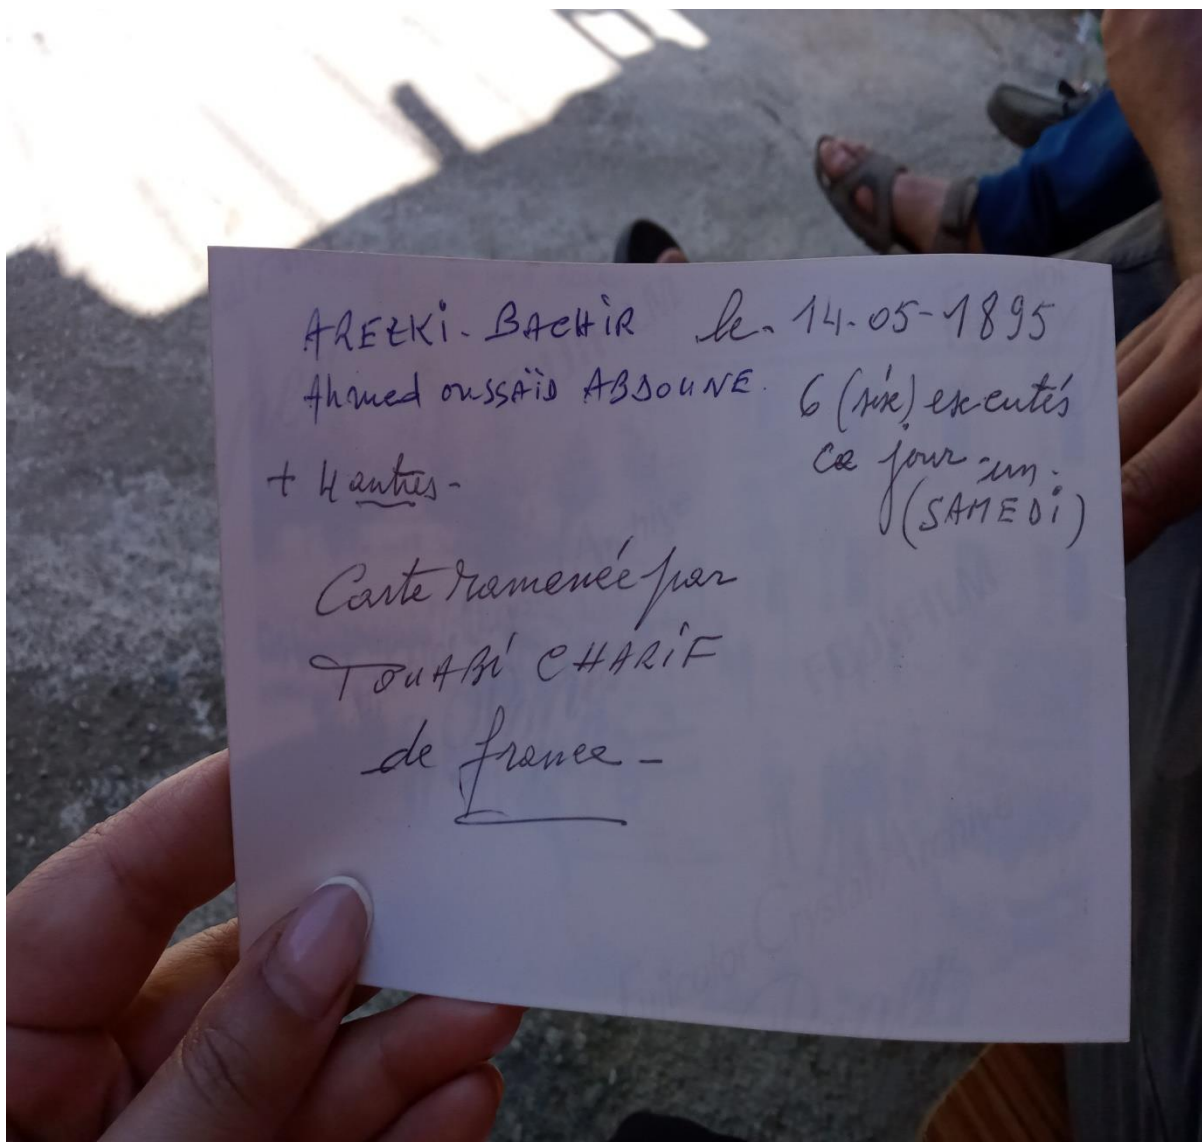 AREZKI - BACHIR le - 14-05-1895
Ahmed oussaïd ABDOUNE. 6 (six) executés
ce jour - un -
+ 4 autres - (SAMEDI)
Carte ramenée par
TOUABI CHARIF
de france -
Fujicolor Crystal Archive